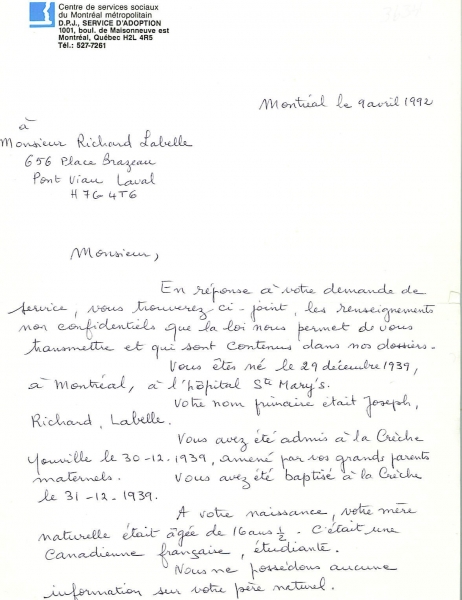 Centre de services sociaux
du Montréal métropolitain
D.P.J., SERVICE D'ADOPTION
1001, boul. de Maisonneuve est
Montréal, Québec H2L 4R5
Tél.: 527-7261
Montréal le 9 avril 1992
à
Monsieur Richard Labelle
656 Place Brazeau
Pont Viau Laval
H7G 4T6
Monsieur,
En réponse à votre demande de
service, vous trouverez ci-joint, les renseignements
non confidentiels que la loi nous permet de vous
transmettre et qui sont contenus dans nos dossiers.
Vous êtes né le 29 décembre 1939,
à Montréal, à l'hôpital Ste Mary's.
Votre nom primaire était Joseph,
Richard, Labelle.
Vous avez été admis à la Crèche
Youville le 30-12-1939, amené par vos grands parents
maternels. Vous avez été baptisé à la Crèche
le 31-12-1939.
A votre naissance, votre mère
naturelle était âgée de 16 ans ½. C'était une
Canadienne française, étudiante.
Nous ne possédons aucune
information sur votre père naturel.